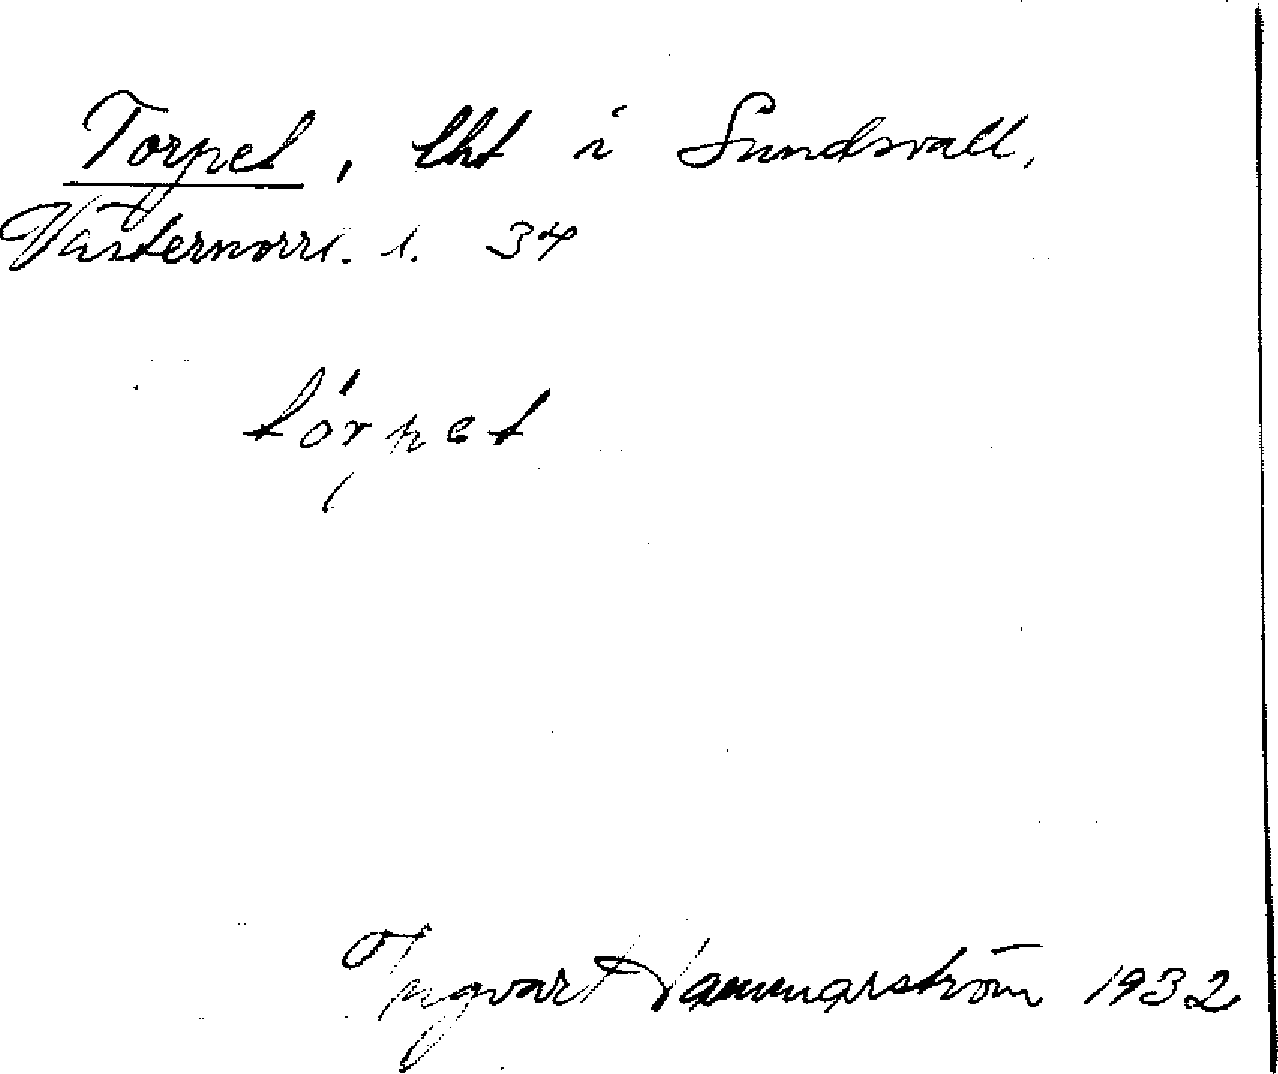 Torpet, lht i Sundsvall,
Västernorrl. l. 34
tórpet
Ingvart Hammarström 1932